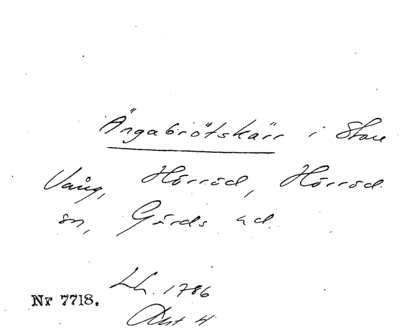 Ängabrötskärr i Stora
Vång, Hörröd, Hörröd
sn, Gärds hd.
Lh. 1786
Akt 4
Nr 7718.